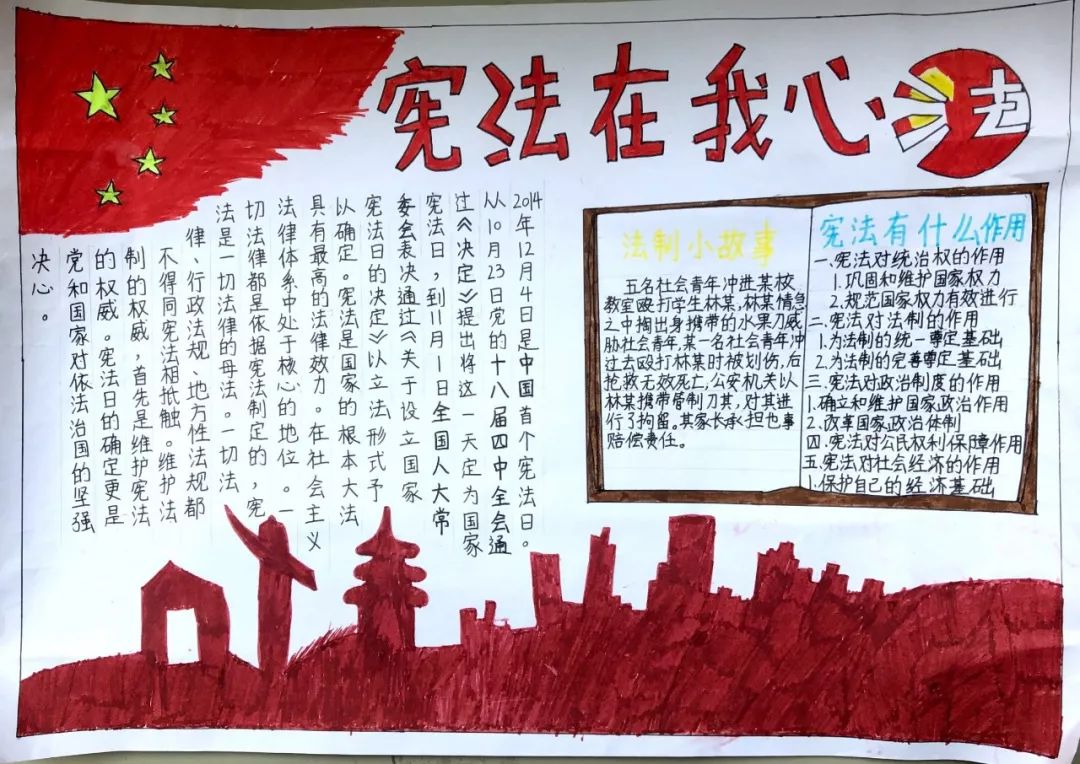 宪法在我心
法
2014年12月4日是中国首个宪法日。
从10月23日党的十八届四中全会通
过《决定》提出将这一天定为国家
宪法日,到11月1日全国人大常
委会表决通过《关于设立国家
宪法日的决定》以立法形式予
以确定。宪法是国家的根本大法
具有最高的法律效力。在社会主义
法律体系中处于核心的地位。一
切法律都是依据宪法制定的,宪
法是一切法律的母法。一切法
律、行政法规、地方性法规都
不得同宪法相抵触。维护法
制的权威,首先是维护宪法
的权威。宪法日的确定更是
党和国家对依法治国的坚强
决心。
法制小故事
五名社会青年冲进某校
教室殴打学生林某,林某情急
之中掏出身携带的水果刀威
胁社会青年,某一名社会青年冲
过去殴打林某时被划伤,后
抢救无效死亡,公安机关以
林某携带管制刀其,对其进
行了拘留。其家长承担也事
赔偿责任。
宪法有什么作用
一、宪法对统治权的作用
1.巩固和维护国家权力
2.规范国家权力有效进行
二、宪法对法制的作用
1.为法制的统一尊定基础
2.为法制的完善尊定基础
三、宪法对政治制度的作用
1.确立和维护国家政治作用
2.改革国家政治体制
四、宪法对公民权利保障作用
五、宪法对社会经济的作用
1.保护自己的经济基础